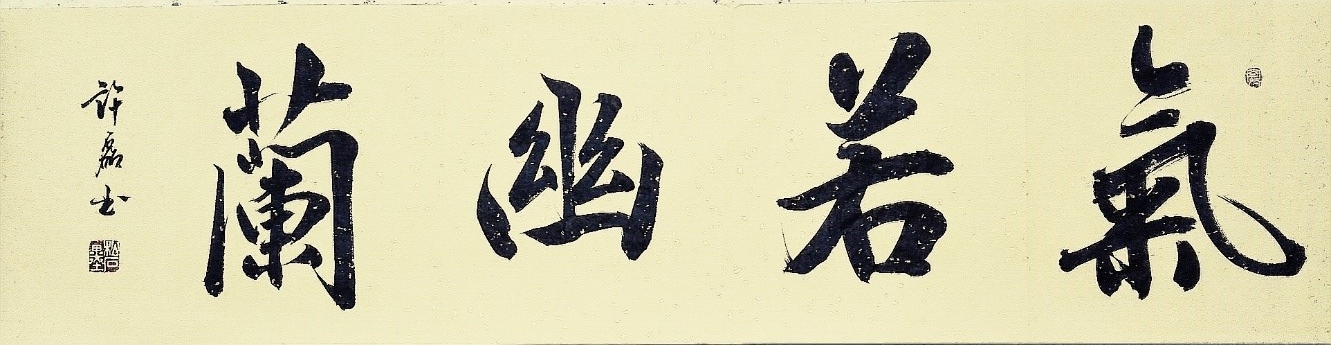 氣若幽蘭
許磊书